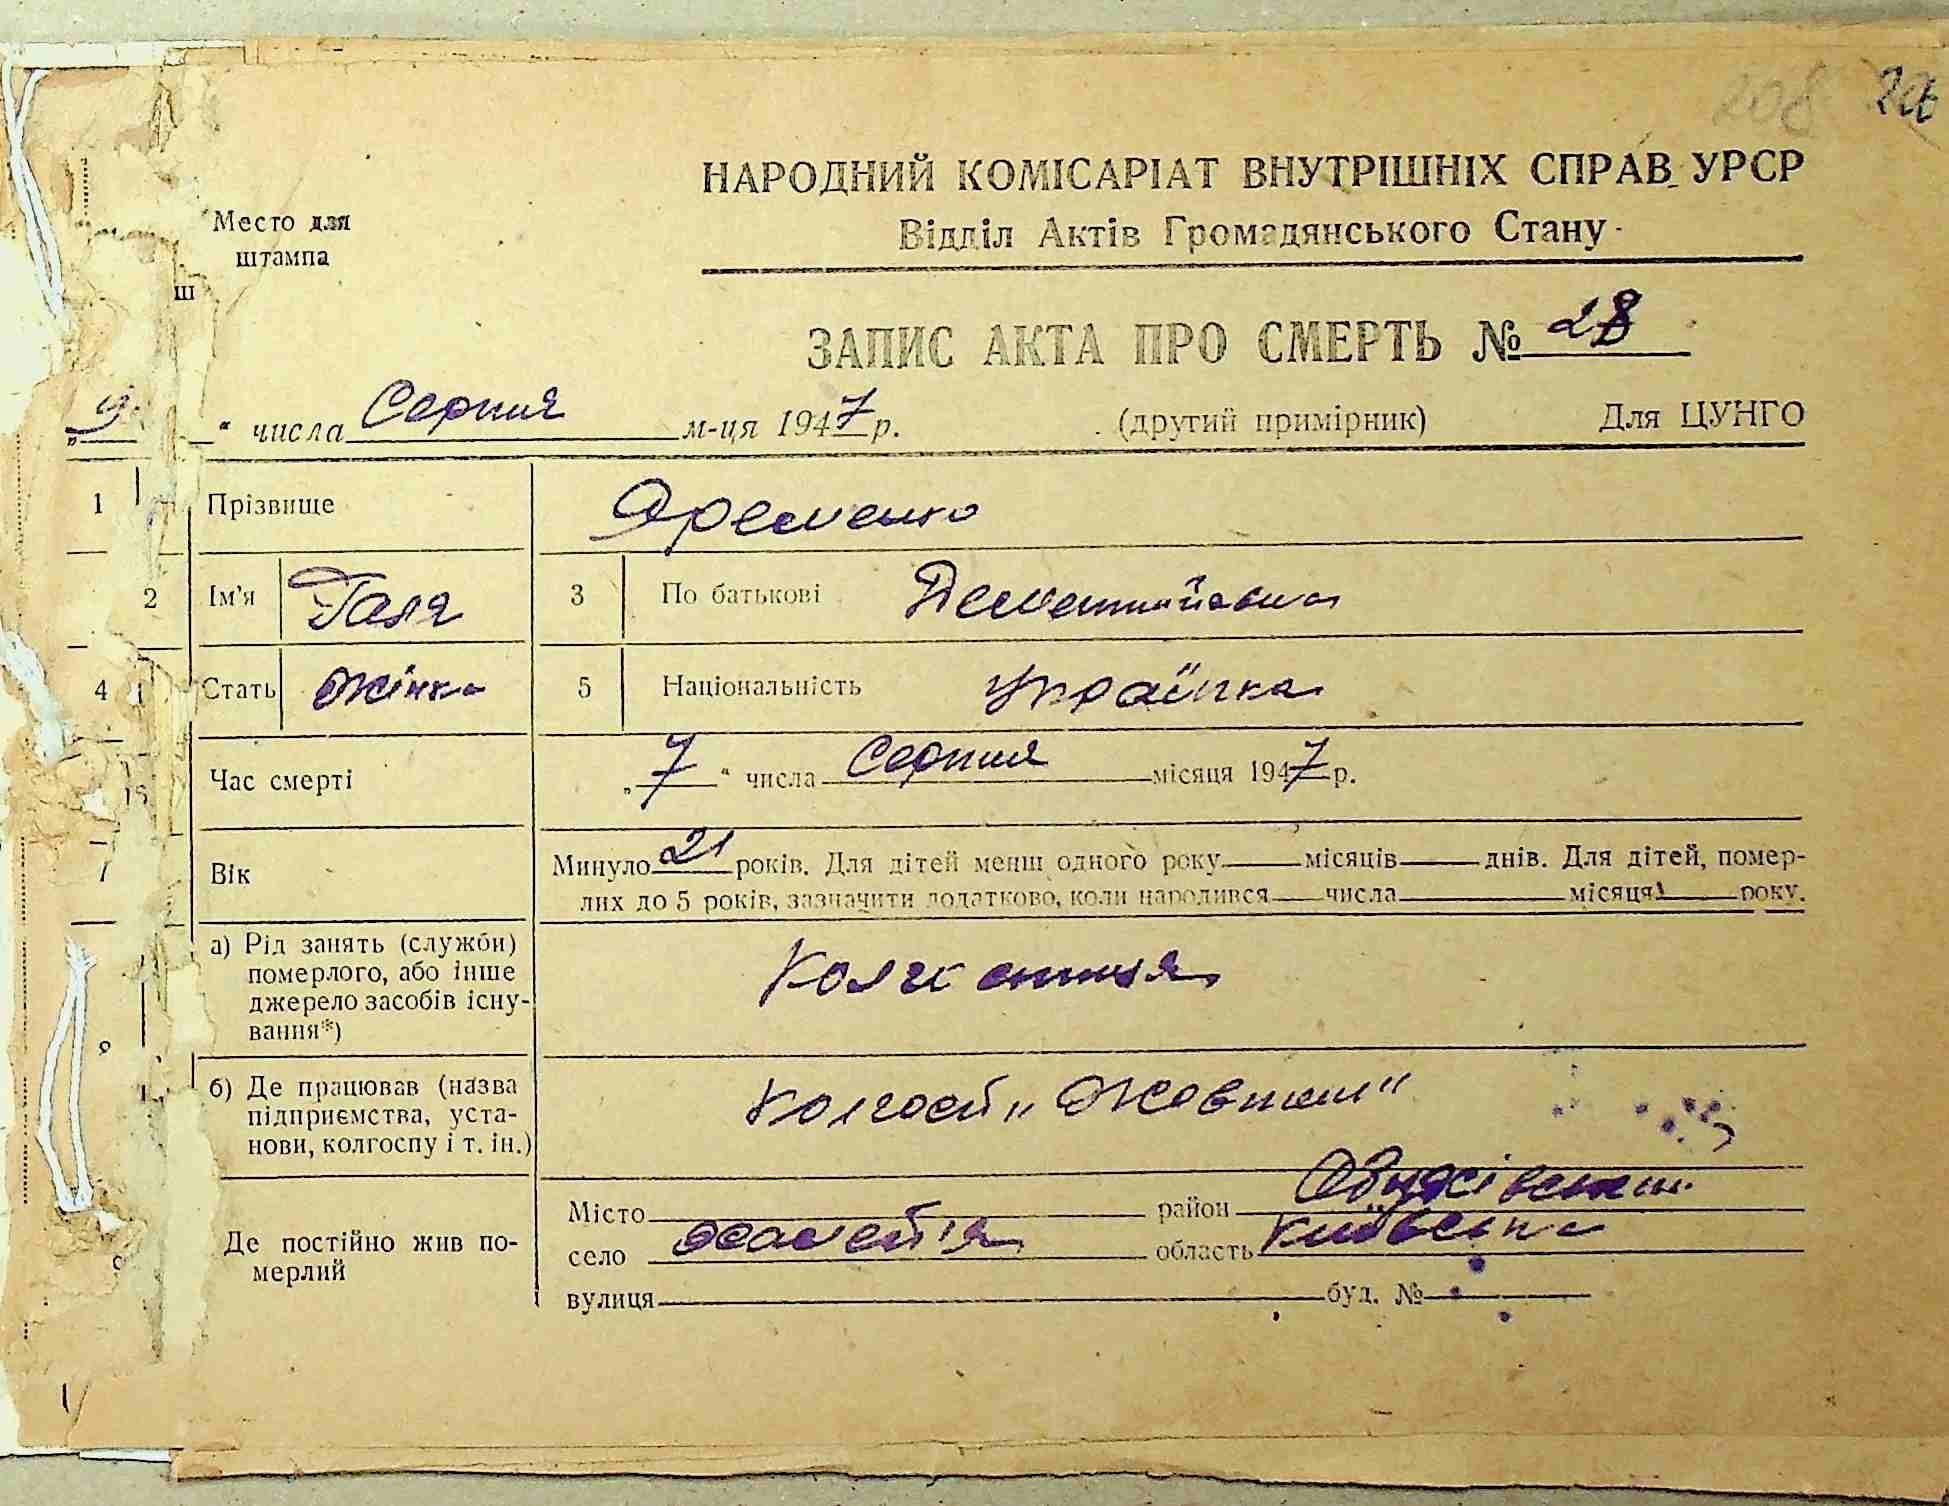 208
Место для
штампа
НАРОДНИЙ КОМІСАРІАТ ВНУТРІШНІХ СПРАВ УРСР
Відділ Актів Громадянського Стану
ш
ЗАПИС АКТА ПРО СМЕРТЬ № 28
„ 9 “ числа Серпня м-ця 1947 р. (другий примірник) Для ЦУНГО
1 Прізвище Яременко
2 Ім'я Галя 3 По батькові Дементиівна
4 Стать Жінка 5 Національність Українка
Час смерті „ 7 “ числа Серпня місяця 1947 р.
7 Вік Минуло 21 років. Для дітей менш одного року місяців днів. Для дітей, помер-
лих до 5 років, зазначити додатково, коли народився числа місяця року.
а) Рід занять (служби)
померлого, або інше
джерело засобів існу-
вання*)
Колгоспниця
б) Де працював (назва
підприємства, уста-
нови, колгоспу і т. ін.)
Колгосп „Жовтень“
Де постійно жив по-
мерлий
Місто район Обухівський
село область Київська
вулиця буд. №